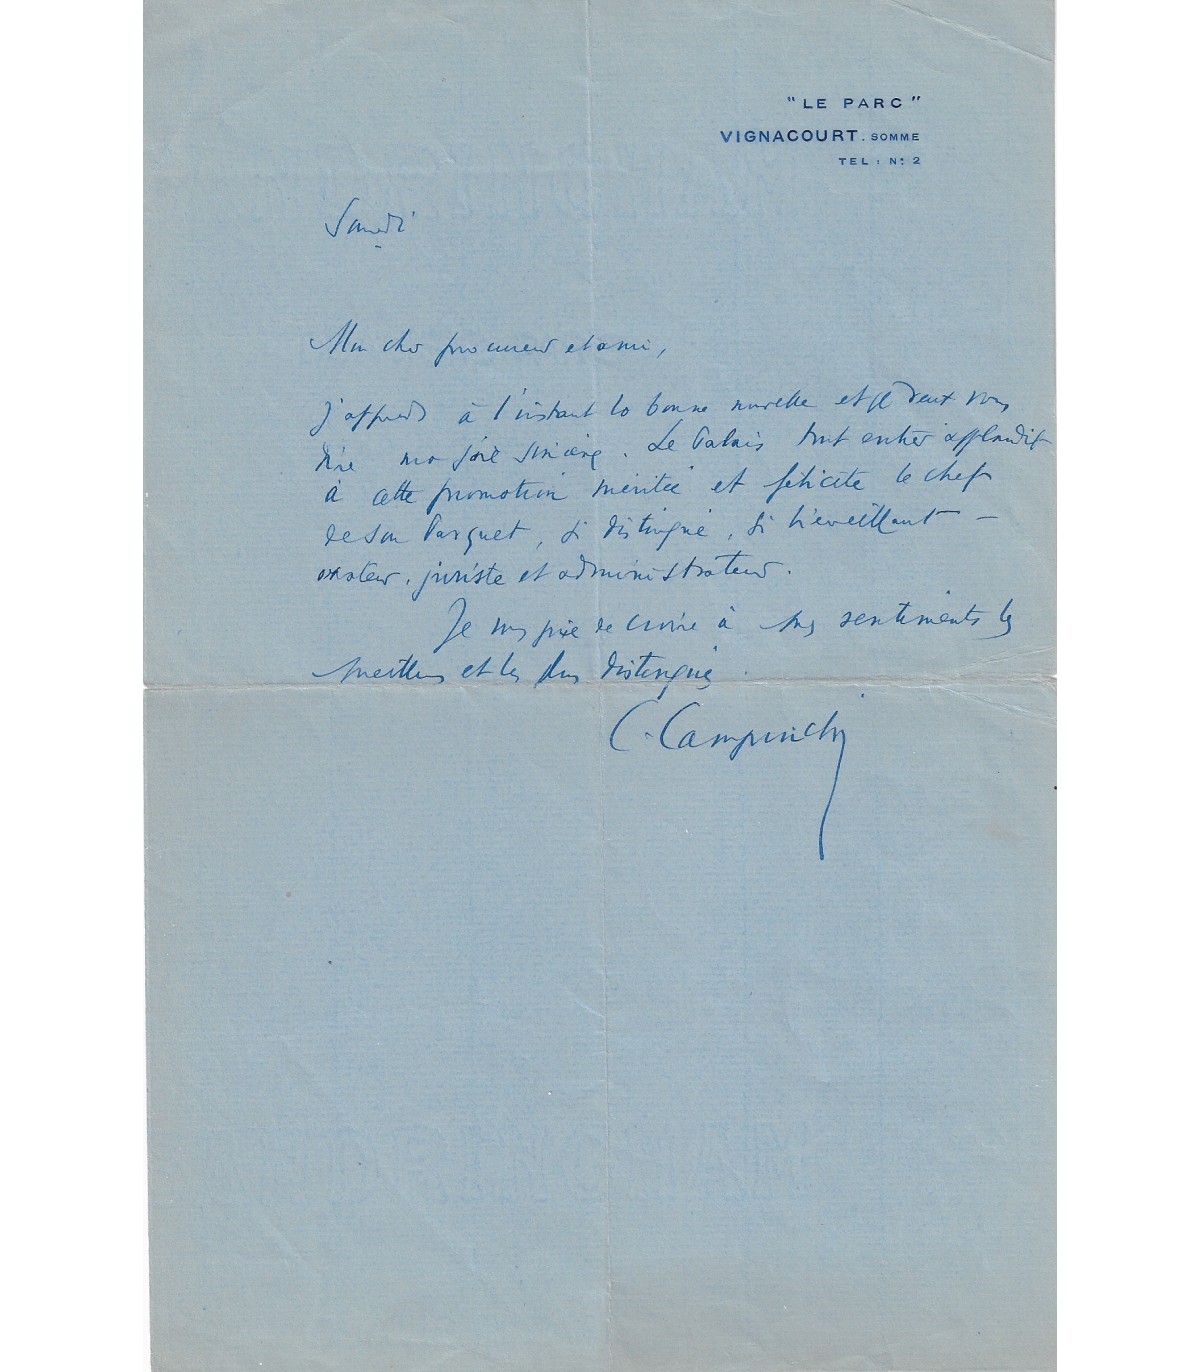 "LE PARC"
VIGNACOURT. SOMME
TEL : N: 2
Samedi
Mon cher procureur et ami,
j'apprends à l'instant la bonne nouvelle et je veux vous
dire ma joie sincère. Le Palais tout entier applaudit
à cette promotion méritée et félicite le chef
de son Parquet, si distingué, si bienveillant –
orateur, juriste et administrateur.
Je vous prie de croire à mes sentiments les
meilleurs et les plus distingués.
C. Campinchi